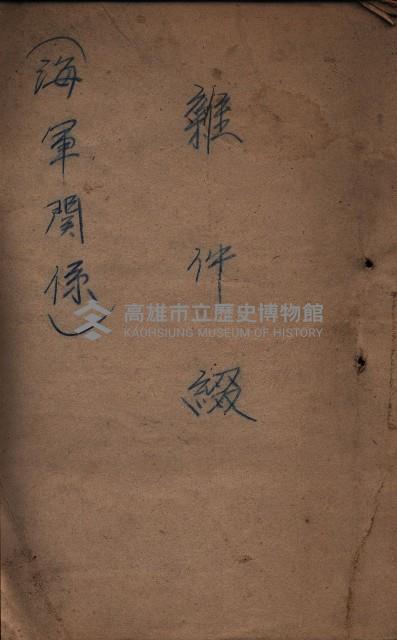 雜件綴
(海軍関係)
高雄市立歷史博物館
KAOHSIUNG MUSEUM OF HISTORY